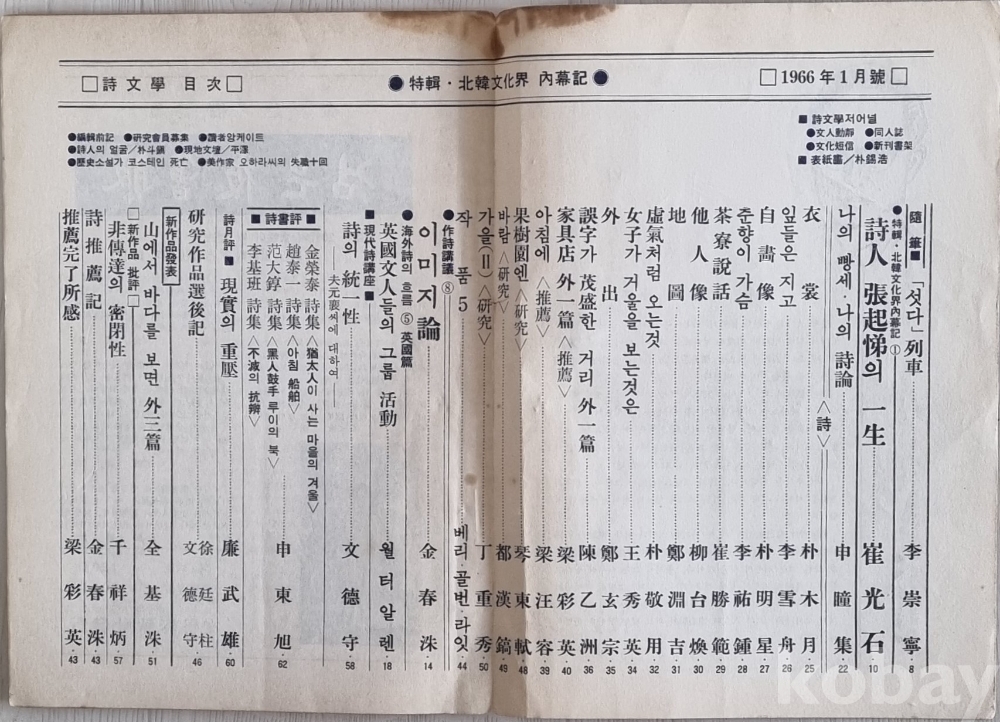 □1966年1月號□
●特輯·北韓文化界 內幕記●
□詩文學 目次□
■詩文學저어널
●文人動靜 ●同人誌
●文化短信 ●新刊書架
■表紙畵/朴錫浩
●編輯前記 ●硏究會員募集 ●讀者앙케이트
●詩人의 얼굴/朴斗鎭 ●現地文壇/平澤
●歷史소설가 코스테인 死亡 ●美作家 오하라씨의 失職十回
隨筆■「섯다」列車 李崇寧·8
●特輯·北韓文化界內幕記①
詩人 張起悌의 一生 崔光石·10
나의 빵세·나의 詩論 申瞳集·22
<詩>
衣裳 朴木月·25
잎들은 지고 李雪舟·26
自畵像 朴明星·27
춘향이 가슴 李祐鍾·28
茶寮說話 崔勝範·29
他人像 柳台煥·30
地圖 鄭淵吉·31
虛氣처럼 오는것 朴敬用·32
女子가 거울을 보는것은 王秀英·34
外出 鄭玄宗·35
誤字가 茂盛한 거리 外一篇 陳乙洲·36
家具店 外一篇<推薦> 梁彩英·40
아침에<推薦> 梁汪容·39
果樹園엔<硏究> 琴東軾·48
바람<硏究> 都漢鎬·49
가을(Ⅱ)<硏究> 丁重秀·50
작품5 베리·골번·라잇·44
●作詩講議⑧
이미지論 金春洙·14
●海外詩의 흐름⑤英國篇
英國文人들의 그룹 活動 월터알렌·18
■現代詩講座■
詩의 統一性 文德守·58
─夫元袁씨에 대하여─
■詩書評■
金榮泰 詩集<猶太人이 사는 마을의 겨울>
趙泰一 詩集<아침 船舶>
范大錞 詩集<黑人鼓手 루이의 북>
李基班 詩集<不滅의 抗辯>
申東旭·62
詩月評■現實의 重壓 廉武雄·60
硏究作品選後記 徐廷柱 文德守·46
新作品發表
山에서 바다를 보면 外三篇 全基洙·51
□新作品 批評□
非傳達의 密閉性 千祥炳·57
詩推薦記 金春洙·43
推薦完了所感 梁彩英·43
kobay